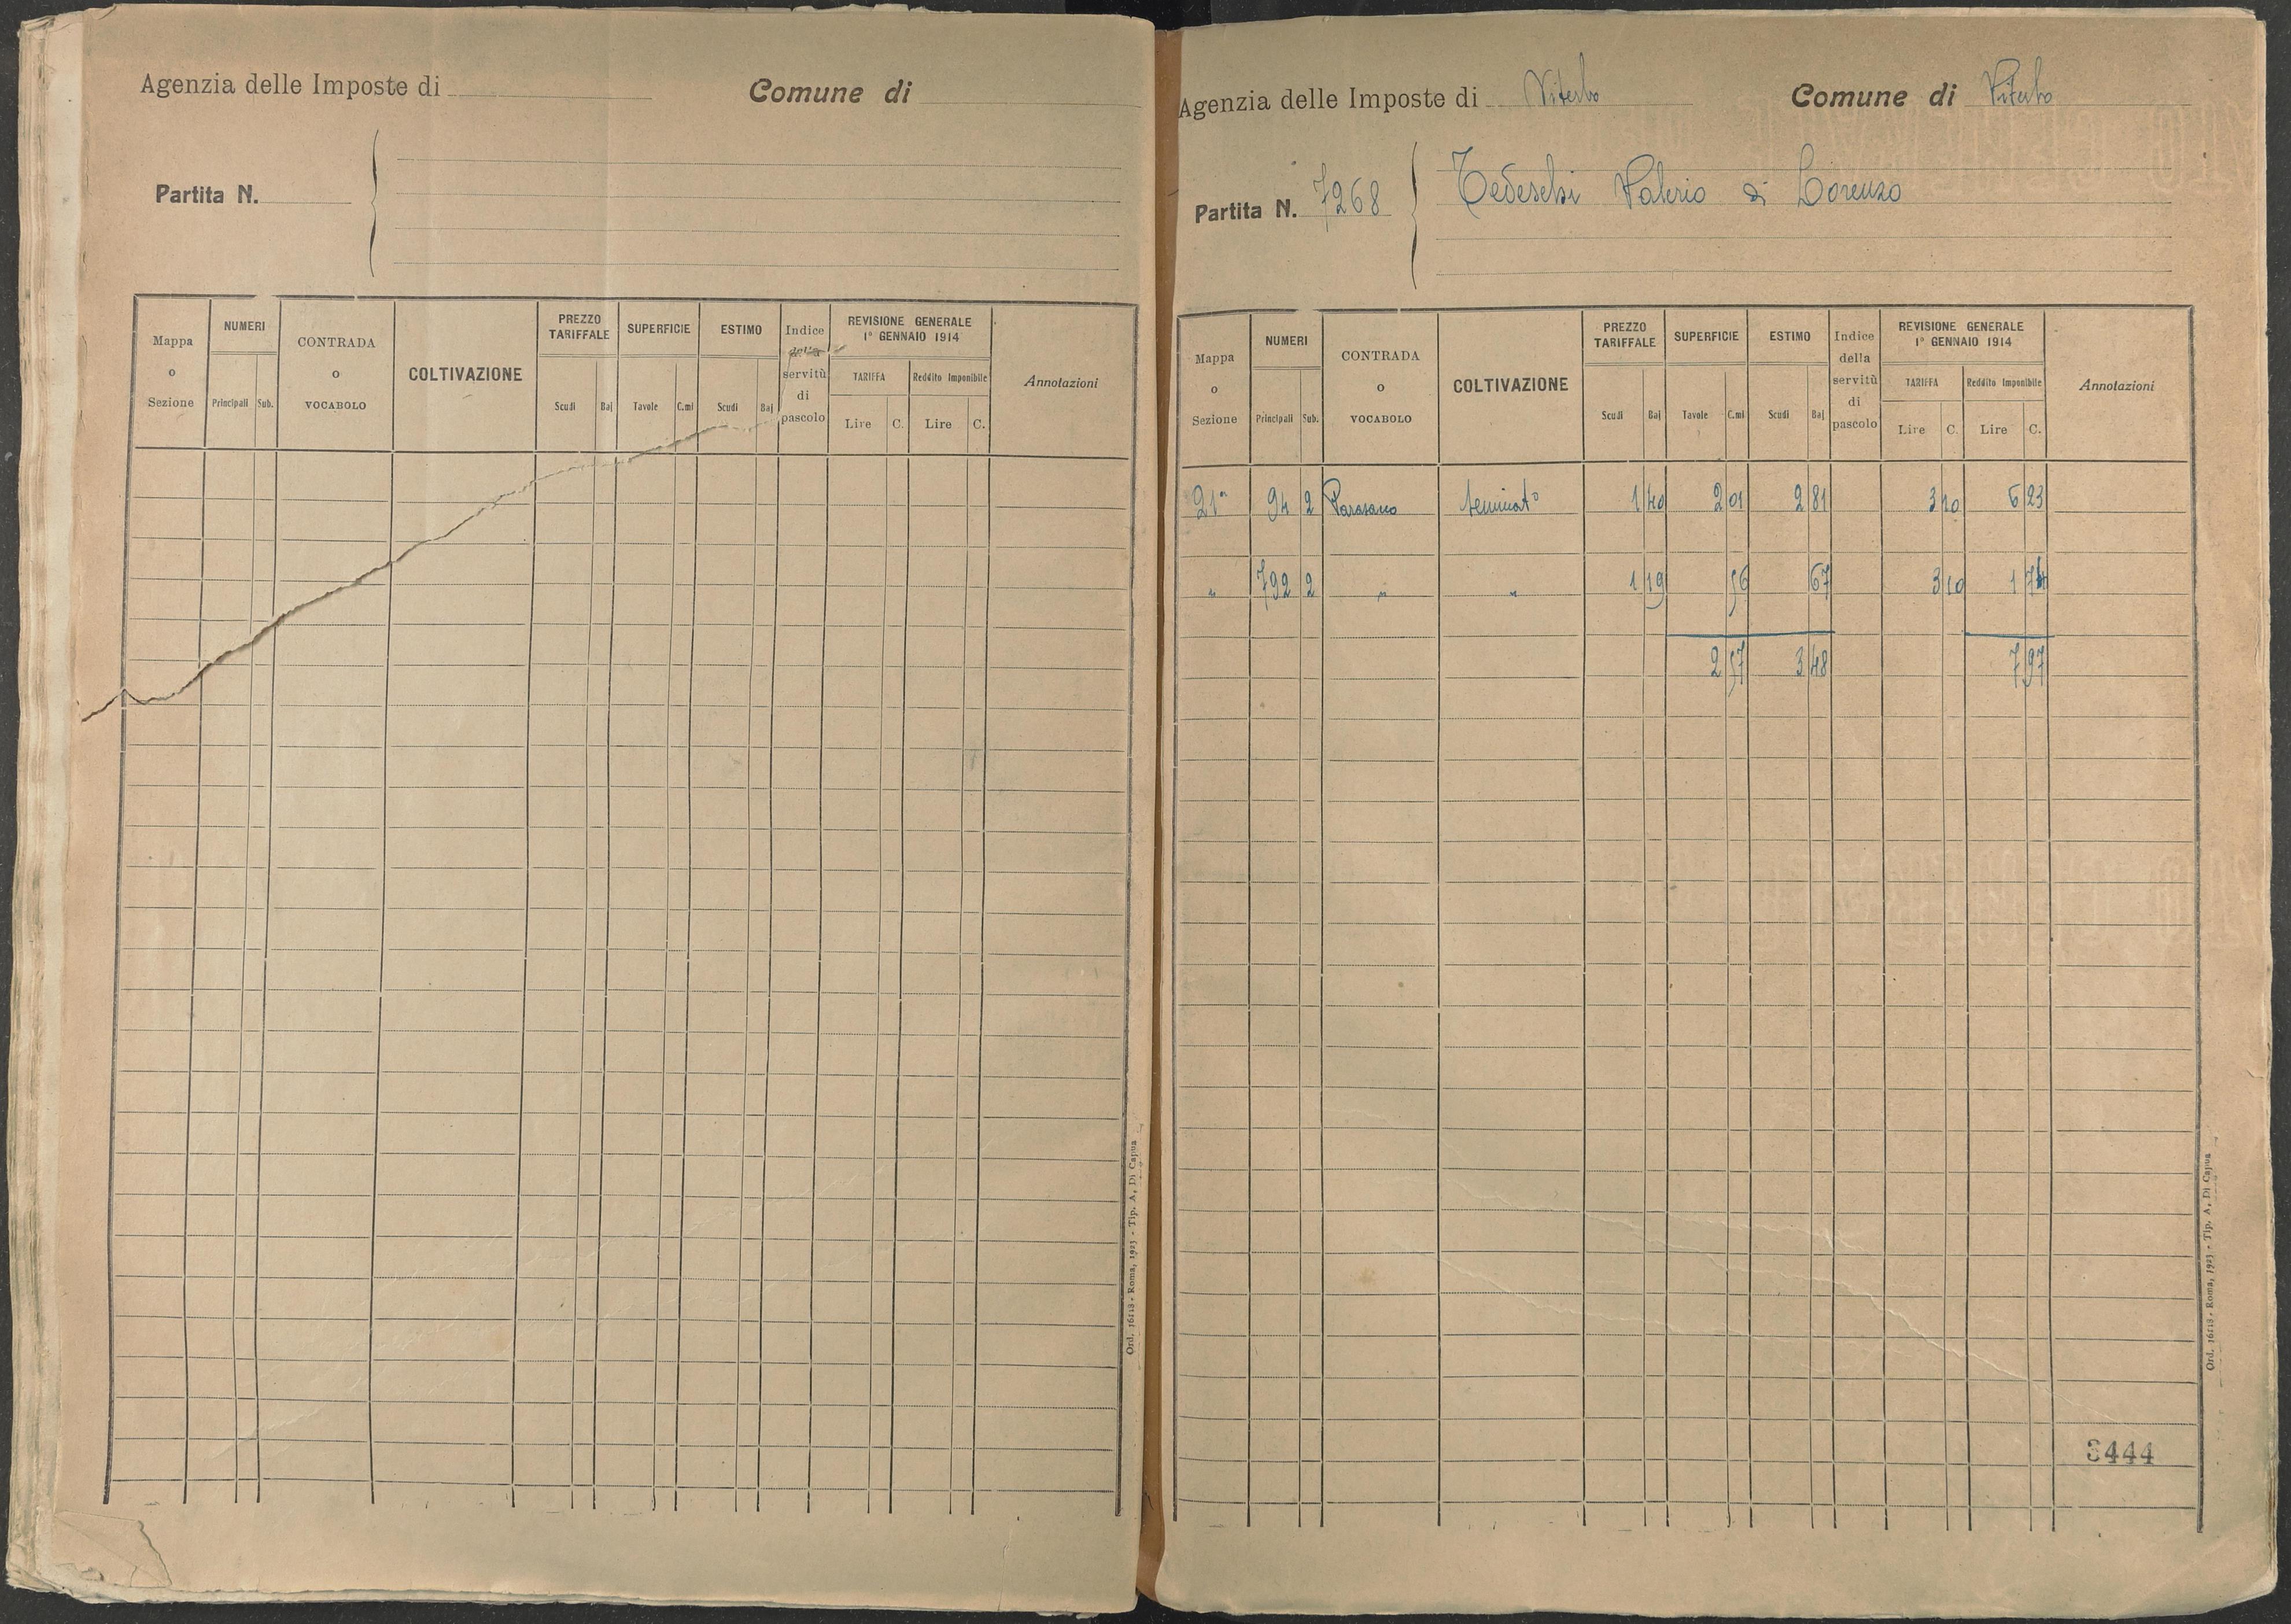 Agenzia delle Imposte di
Comune di
Partita N.
Mappa o Sezione
NUMERI
Principali Sub.
CONTRADA o VOCABOLO
COLTIVAZIONE
PREZZO TARIFFALE
Scudi Baj
SUPERFICIE
Tavole C.mi
ESTIMO
Scudi Baj
Indice della servitù di pascolo
REVISIONE GENERALE
1° GENNAIO 1914
TARIFFA
Lire C.
Reddito Imponibile
Lire C.
Annotazioni
Ord. 16118 - Roma, 1923 - Tip. A. Di Capua
Agenzia delle Imposte di Viterbo
Comune di Viterbo
Partita N. 7268
Tedeschi Valerio di Lorenzo
Mappa o Sezione
NUMERI
Principali Sub.
CONTRADA o VOCABOLO
COLTIVAZIONE
PREZZO TARIFFALE
Scudi Baj
SUPERFICIE
Tavole C.mi
ESTIMO
Scudi Baj
Indice della servitù di pascolo
REVISIONE GENERALE
1° GENNAIO 1914
TARIFFA
Lire C.
Reddito Imponibile
Lire C.
Annotazioni
21a 94 2 seminato 1 40 2 01 2 81 3 10 6 23
" 792 2 " " 1 19 56 67 3 10 1 74
2 57 3 48 7 97
3444
Ord. 16118 - Roma, 1923 - Tip. A. Di Capua